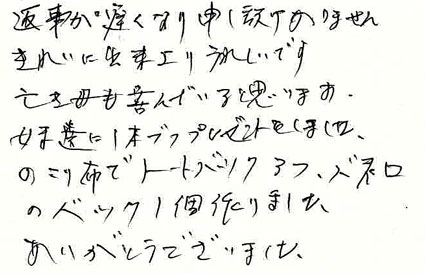 返事が遅くなり申し訳ありません
きれいに出来上りうれしいです
亡き母も喜んでいると思います.
姉妹に1本づつプレゼントをしました、
のこり布でトートバック3つ、が口
のバック1個作りました、
ありがとうございました、